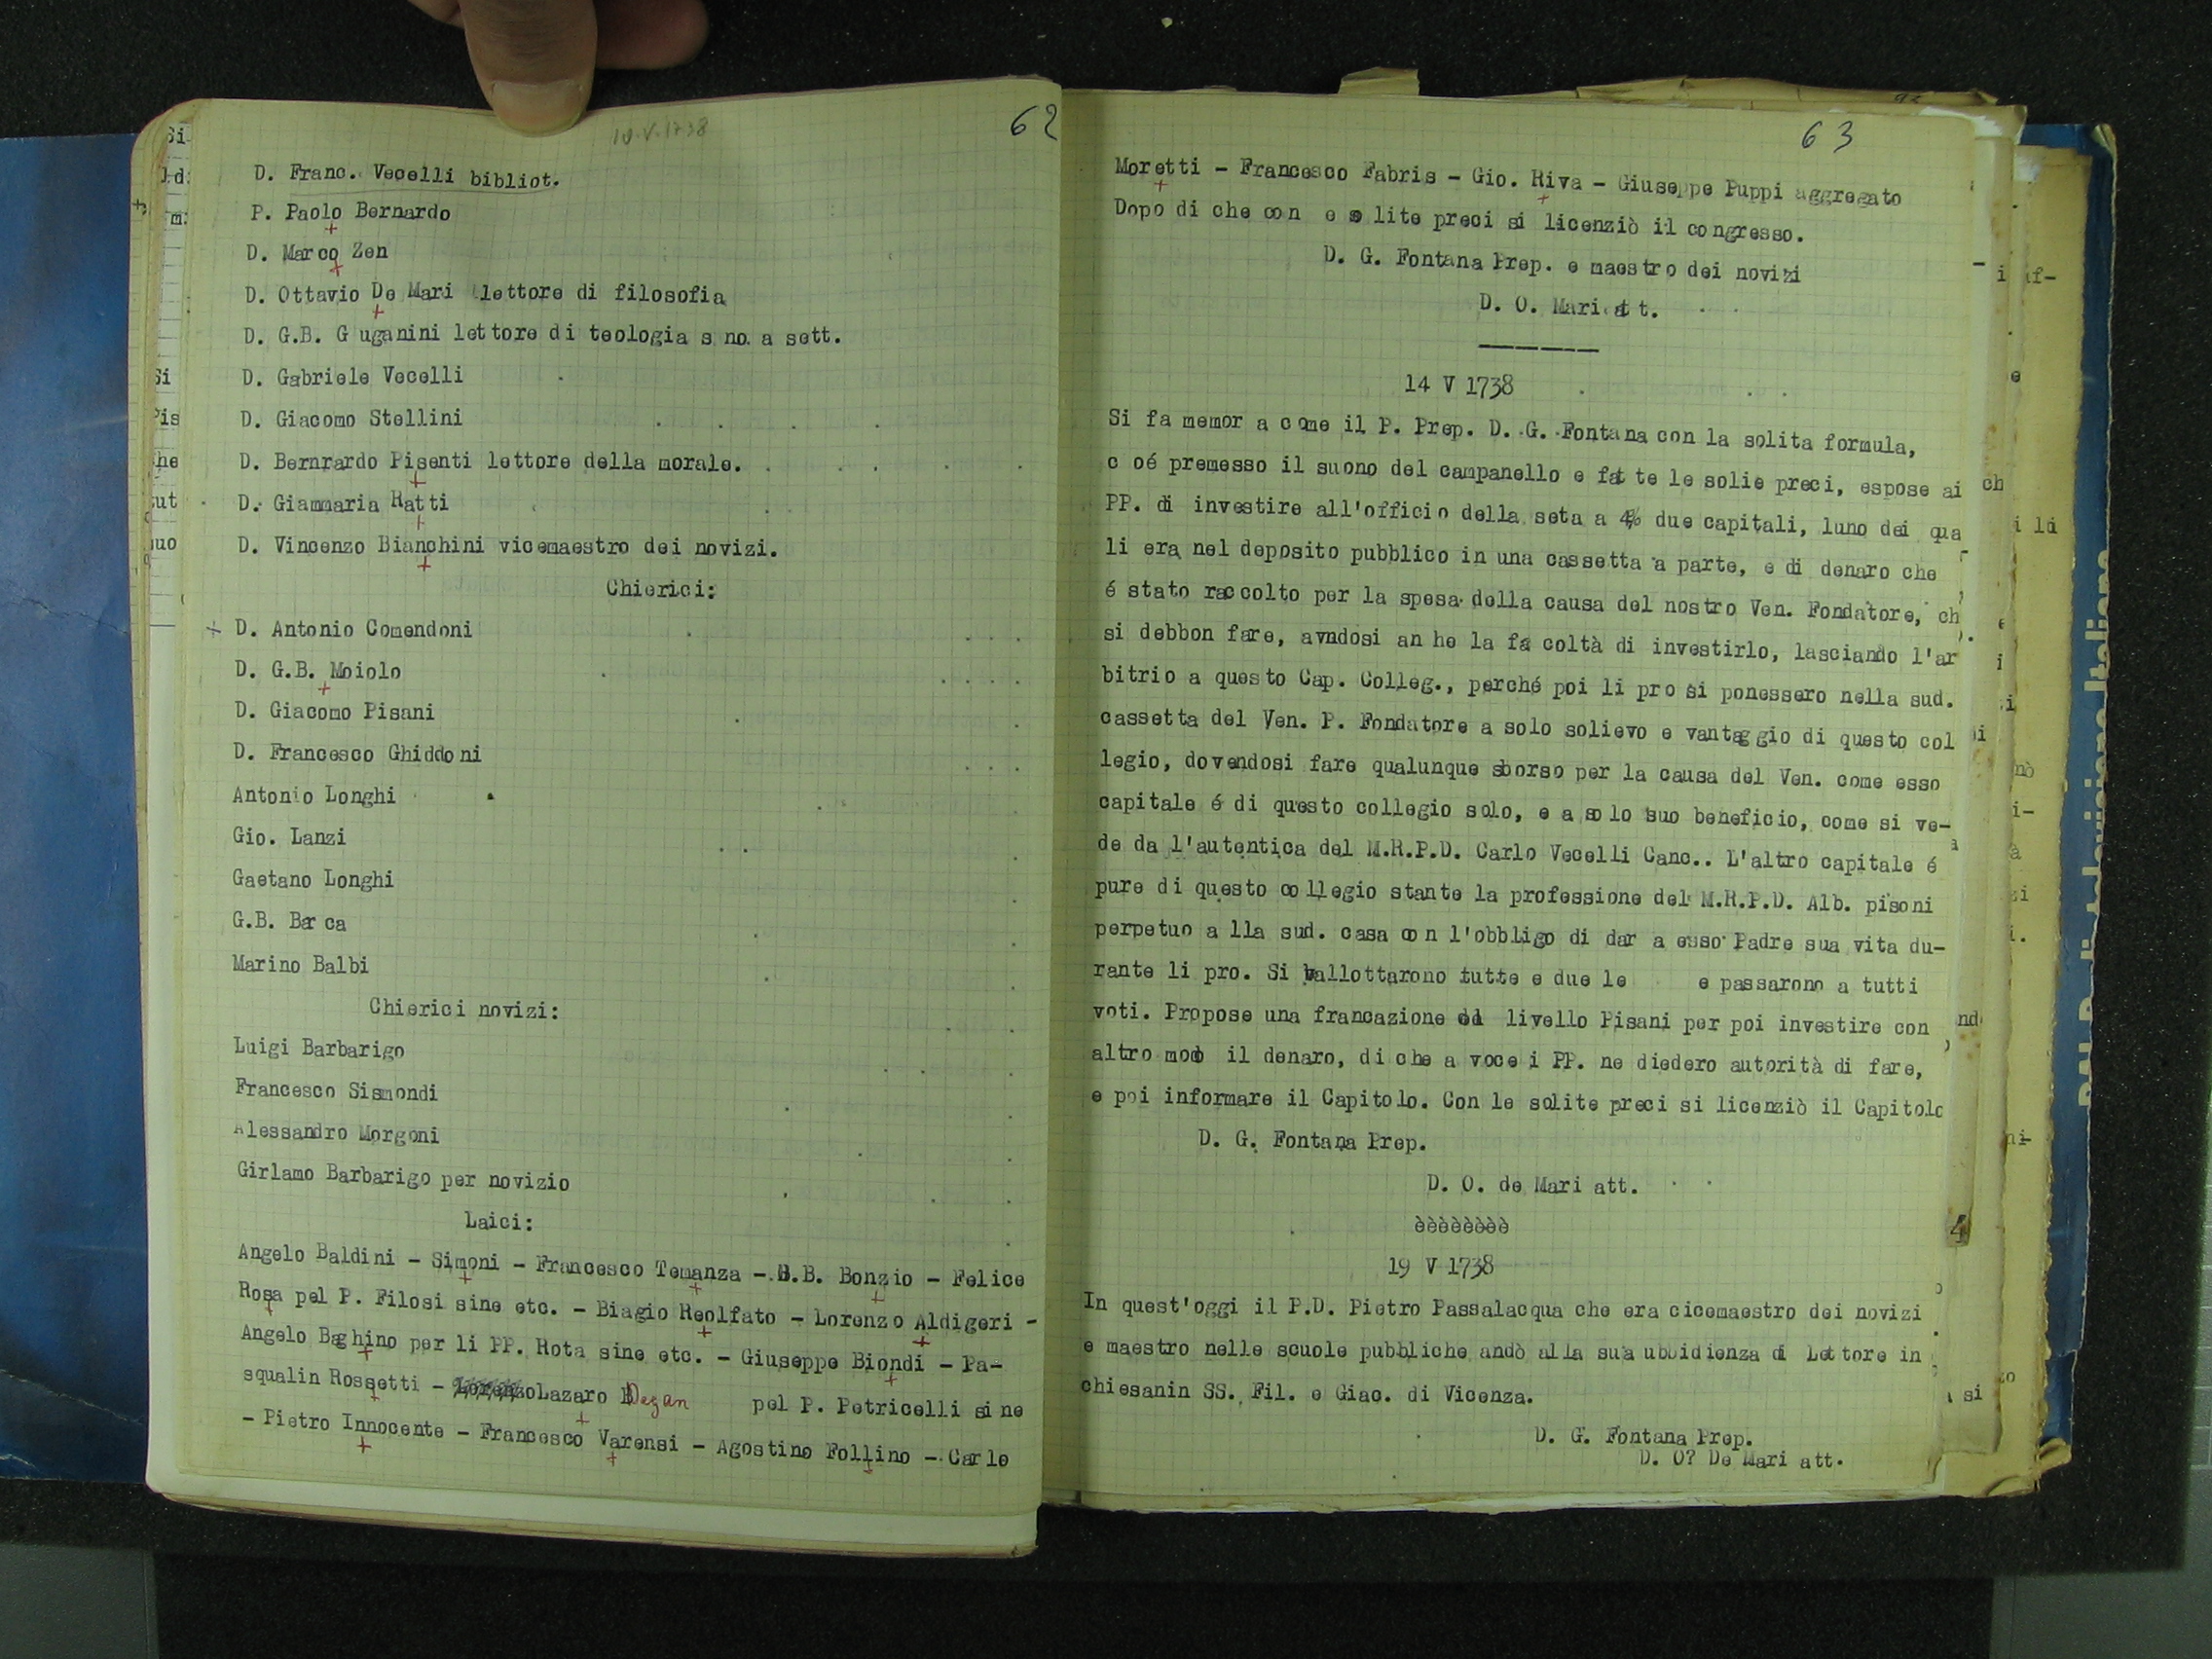 10.V.1738
62
D. Franc. Vecelli bibliot.
P. Paolo Bernardo
D. Marco Zen
D. Ottavio De Mari lettore di filosofia
D. G.B. G uganini lettore di teologia s no a sett.
D. Gabriele Vecelli
D. Giacomo Stellini
D. Bernrardo Pisenti lettore della morale.
D. Giammaria Ratti
D. Vincenzo Bianchini vicemaestro dei novizi.
Chierici:
D. Antonio Comendoni
D. G.B. Moiolo
D. Giacomo Pisani
D. Francesco Ghiddoni
Antonio Longhi
Gio. Lanzi
Gaetano Longhi
G.B. Bar ca
Marino Balbi
Chierici novizi:
Luigi Barbarigo
Francesco Sismondi
Alessandro Morgoni
Girlamo Barbarigo per novizio
Laici:
Angelo Baldini - Simoni - Francesco Temanza - G.B. Bonzio - Felice
Rosa pel P. Filosi sine etc. - Biagio Reolfato - Lorenzo Aldigeri -
Angelo Baghino per li PP. Rota sine etc. - Giuseppe Biondi - Pa-
squalin Rossetti - Lazaro Dezan pel P. Petricelli sine
- Pietro Innocente - Francesco Varensi - Agostino Follino - Carlo
63
Moretti - Francesco Fabris - Gio. Riva - Giuseppe Puppi aggregato
Dopo di che con e so lite preci si licenziò il congresso.
D. G. Fontana Prep. e maestro dei novizi
D. O. Mari att.
14 V 1738
Si fa memor a come il P. Prep. D. G. Fontana con la solita formula,
c oé premesso il suono del campanello e fat te le solie preci, espose ai
PP. di investire all'officio della seta a 4% due capitali, luno dei qua
li era nel deposito pubblico in una cassetta a parte, e di denaro che
é stato raccolto per la spesa della causa del nostro Ven. Fondatore, ch
si debbon fare, avndosi an he la fa coltà di investirlo, lasciando l'ar
bitrio a questo Cap. Colleg., perché poi li pro si ponessero nella sud.
cassetta del Ven. P. Fondatore a solo solievo e vantaggio di questo col
legio, dovendosi fare qualunque sborso per la causa del Ven. come esso
capitale é di questo collegio solo, e a so lo suo beneficio, come si ve-
de da l'autentica del M.R.P.D. Carlo Vecelli Canc.. L'altro capitale é
pure di questo collegio stante la professione del M.R.P.D. Alb. pisoni
perpetuo a lla sud. casa con l'obbligo di dar a esso Padre sua vita du-
rante li pro. Si ballottarono tutte e due le e passarono a tutti
voti. Propose una francazione del livello Pisani per poi investire con
altro modo il denaro, di che a voce i PP. ne diedero autorità di fare,
e poi informare il Capitolo. Con le solite preci si licenziò il Capitolo
D. G. Fontana Prep.
D. O. de Mari att.
èèèèèèèè
19 V 1738
In quest'oggi il P.D. Pietro Passalacqua che era cicemaestro dei novizi
e maestro nelle scuole pubbliche andò alla sua ubbidienza di Lettore in
chiesanin SS. Fil. e Giac. di Vicenza.
D. G. Fontana Prep.
D. O? De Mari att.